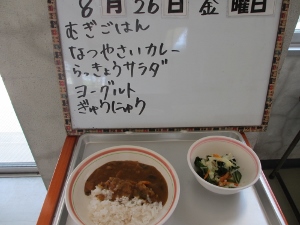 8月26日金曜日
むぎごはん
なつやさいカレー
らっきょうサラダ
ヨーグルト
ぎゅうにゅう